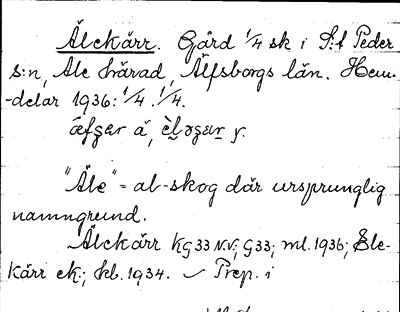 Älekärr. Gård 1/4 sk i S:t Peder
s:n, Ale härad, Älfsborgs län. Hem-
-delar 1936: 1/4. 1/4.
"Äle" = al-skog där ursprunglig
namngrund.
Älekärr KG33 N.V; G33; ml. 1936; Ele-
kärr ek.; kb. 1934. Prep. i